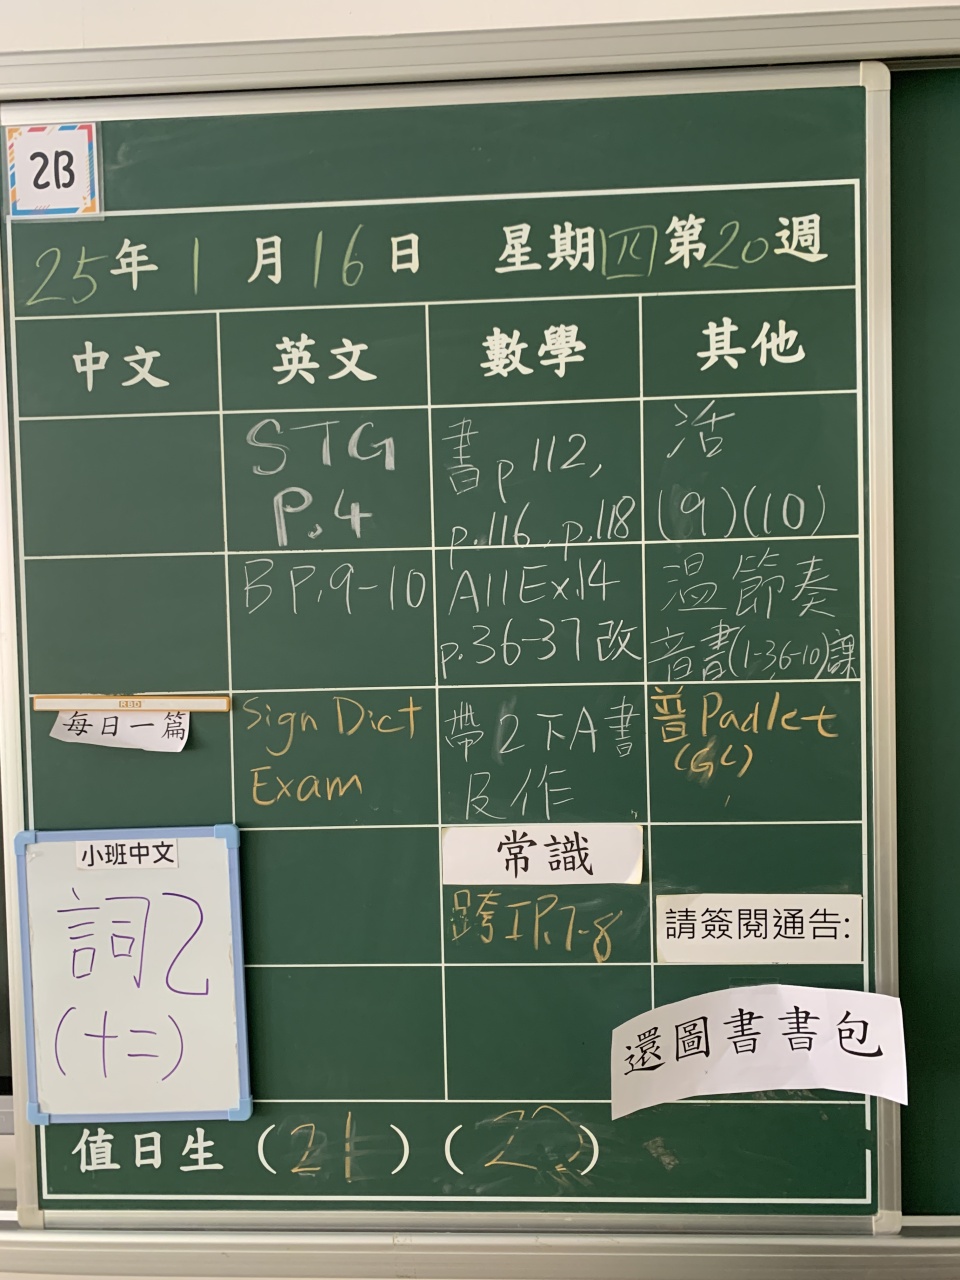 2B
25年1月16日 星期四第20週
中文 英文 數學 其他
STG
P.4
書p112,
p.116, p.118
活
(9)(10)
BP.9-10
AllEx.14
p.36-37改
溫節奏
音書(1-3,6-10)課
RBD
每日一篇
Sign Dict
Exam
帶2下A書
及作
普Padlet
(GC)
小班中文
詞乙
(十二)
常識
跨IP.7-8
請簽閱通告:
還圖書書包
值日生 (21) (22)